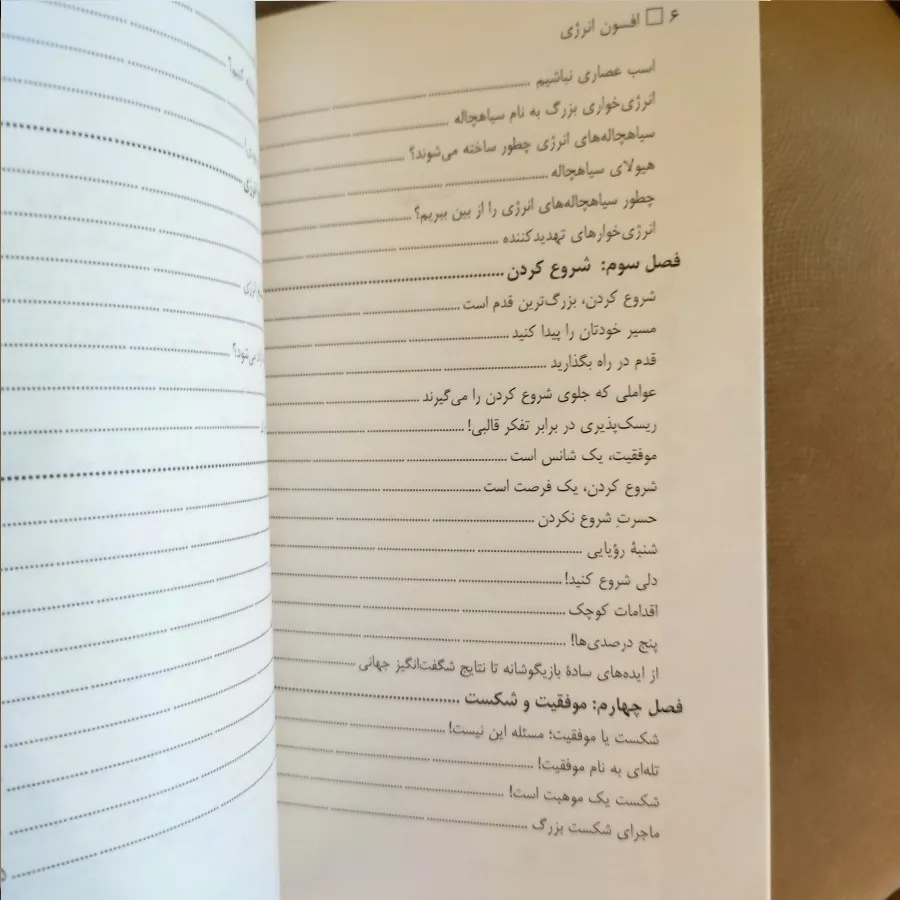 ۶ □ افسون انرژی
اسب عصاری نباشیم
انرژی‌خواری بزرگ به نام سیاهچاله
سیاهچاله‌های انرژی چطور ساخته می‌شوند؟
هیولای سیاهچاله
چطور سیاهچاله‌های انرژی را از بین ببریم؟
انرژی‌خوارهای تهدیدکننده
فصل سوم: شروع کردن
شروع کردن، بزرگ‌ترین قدم است
مسیر خودتان را پیدا کنید
قدم در راه بگذارید
عواملی که جلوی شروع کردن را می‌گیرند
ریسک‌پذیری در برابر تفکر قالبی!
موفقیت، یک شانس است
شروع کردن، یک فرصت است
حسرتِ شروع نکردن
شنبهٔ رؤیایی
دلی شروع کنید!
اقدامات کوچک
پنج درصدی‌ها!
از ایده‌های سادهٔ بازیگوشانه تا نتایج شگفت‌انگیز جهانی
فصل چهارم: موفقیت و شکست
شکست یا موفقیت؛ مسئله این نیست!
تله‌ای به نام موفقیت!
شکست یک موهبت است!
ماجرای شکست بزرگ